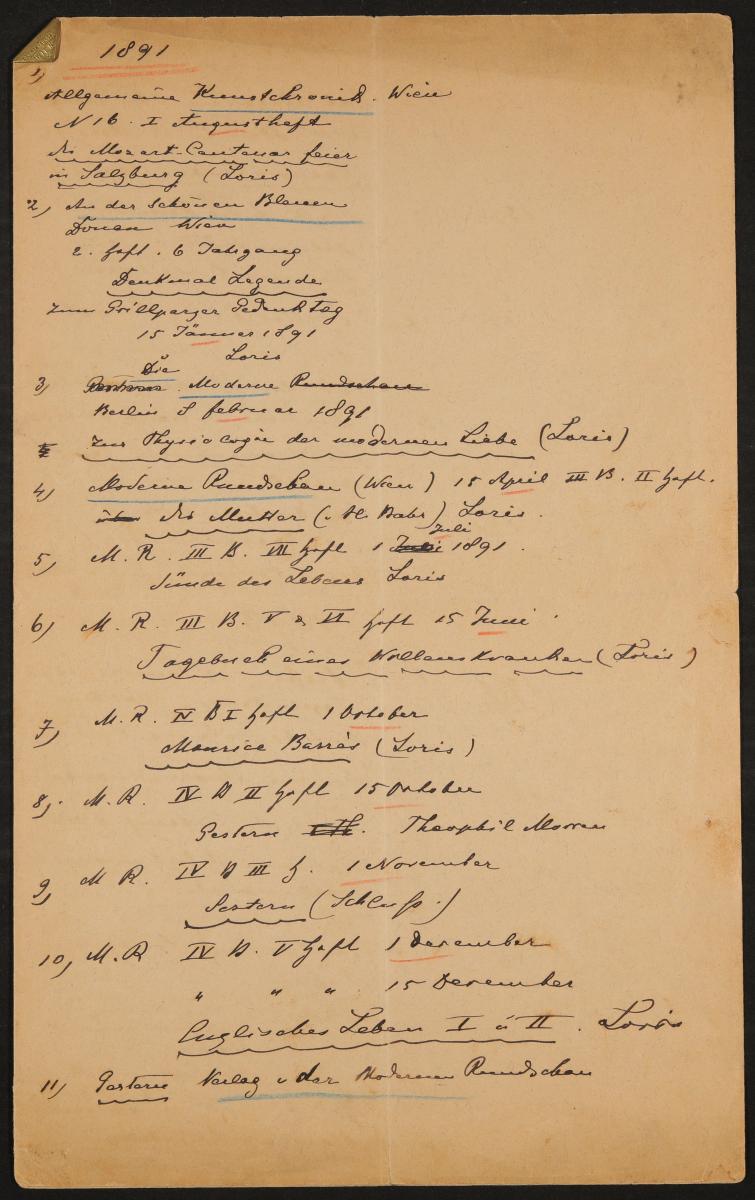 1891
1)
Allgemeine Kunstchronik. Wien
N 16. I Augustheft
die Mozart-Centenar feier
in Salzburg (Loris)
2) An der schönen Blauen
Donau Wien
2. Heft. 6 Jahrgang
Denkmal Legende
Zum Grillparzer Gedenktag
15 Jänner 1891
Loris
Die
3) Moderne Rundschau
Berlin 8 februar 1891
Zur Physiologie der modernen Liebe (Loris)
4) Moderne Rundschau (Wien) 15 April III B. II Heft.
die Mutter (v. H. Bahr) Loris.
Juli
5) M. R. III B. VII Heft 1 Juli 1891.
Sünde des Lebens Loris
6) M. R. III B. V & VI Heft 15 Juni
Tagebuch eines Willenskranken (Loris)
7) M. R. IV B I Heft 1 October
Maurice Barrès (Loris)
8) M. R. IV B II Heft 15 October
Gestern Theophil Morren
9) M R. IV B III H. 1 November
Gestern (Schluß.)
10) M. R IV B. V Heft 1 December
" " " 15 December
Englisches Leben I u II. Loris
11) Gestern Verlag v der Modernen Rundschau